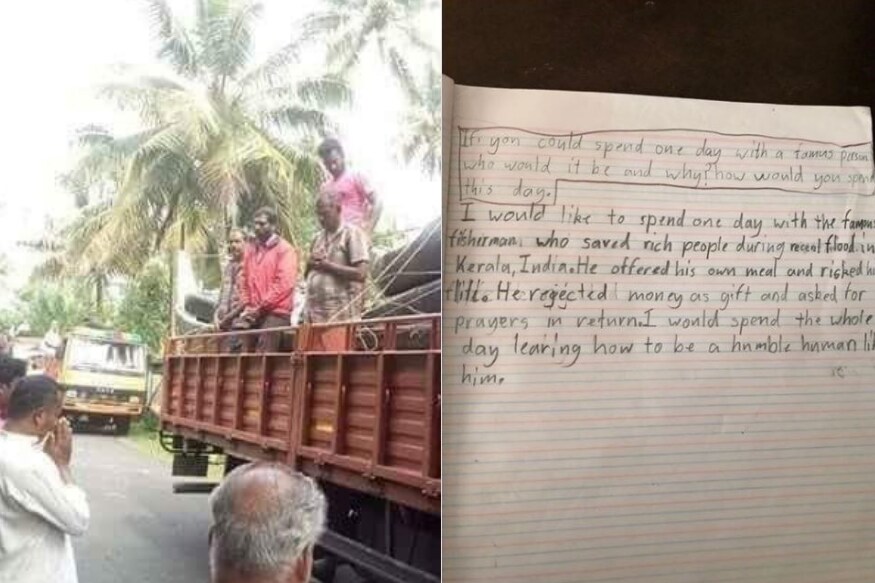 If you could spend one day with a famus person
who would it be and why? how would you spend
this day.
I would like to spend one day with the famous
fisherman who saved rich people during recent flood in
Kerala, India. He offered his own meal and risked his
life. He regected money as gift and asked for
prayers in return. I would spend the whole
day learing how to be a humble human like
him.